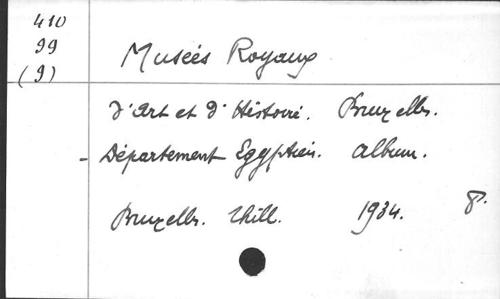 410
99
(9)
Musées Royaux
d'Art et d'Histoire. Bruxelles.
- Département Egyptien. Album.
Bruxelles. Thill. 1934. 8°.